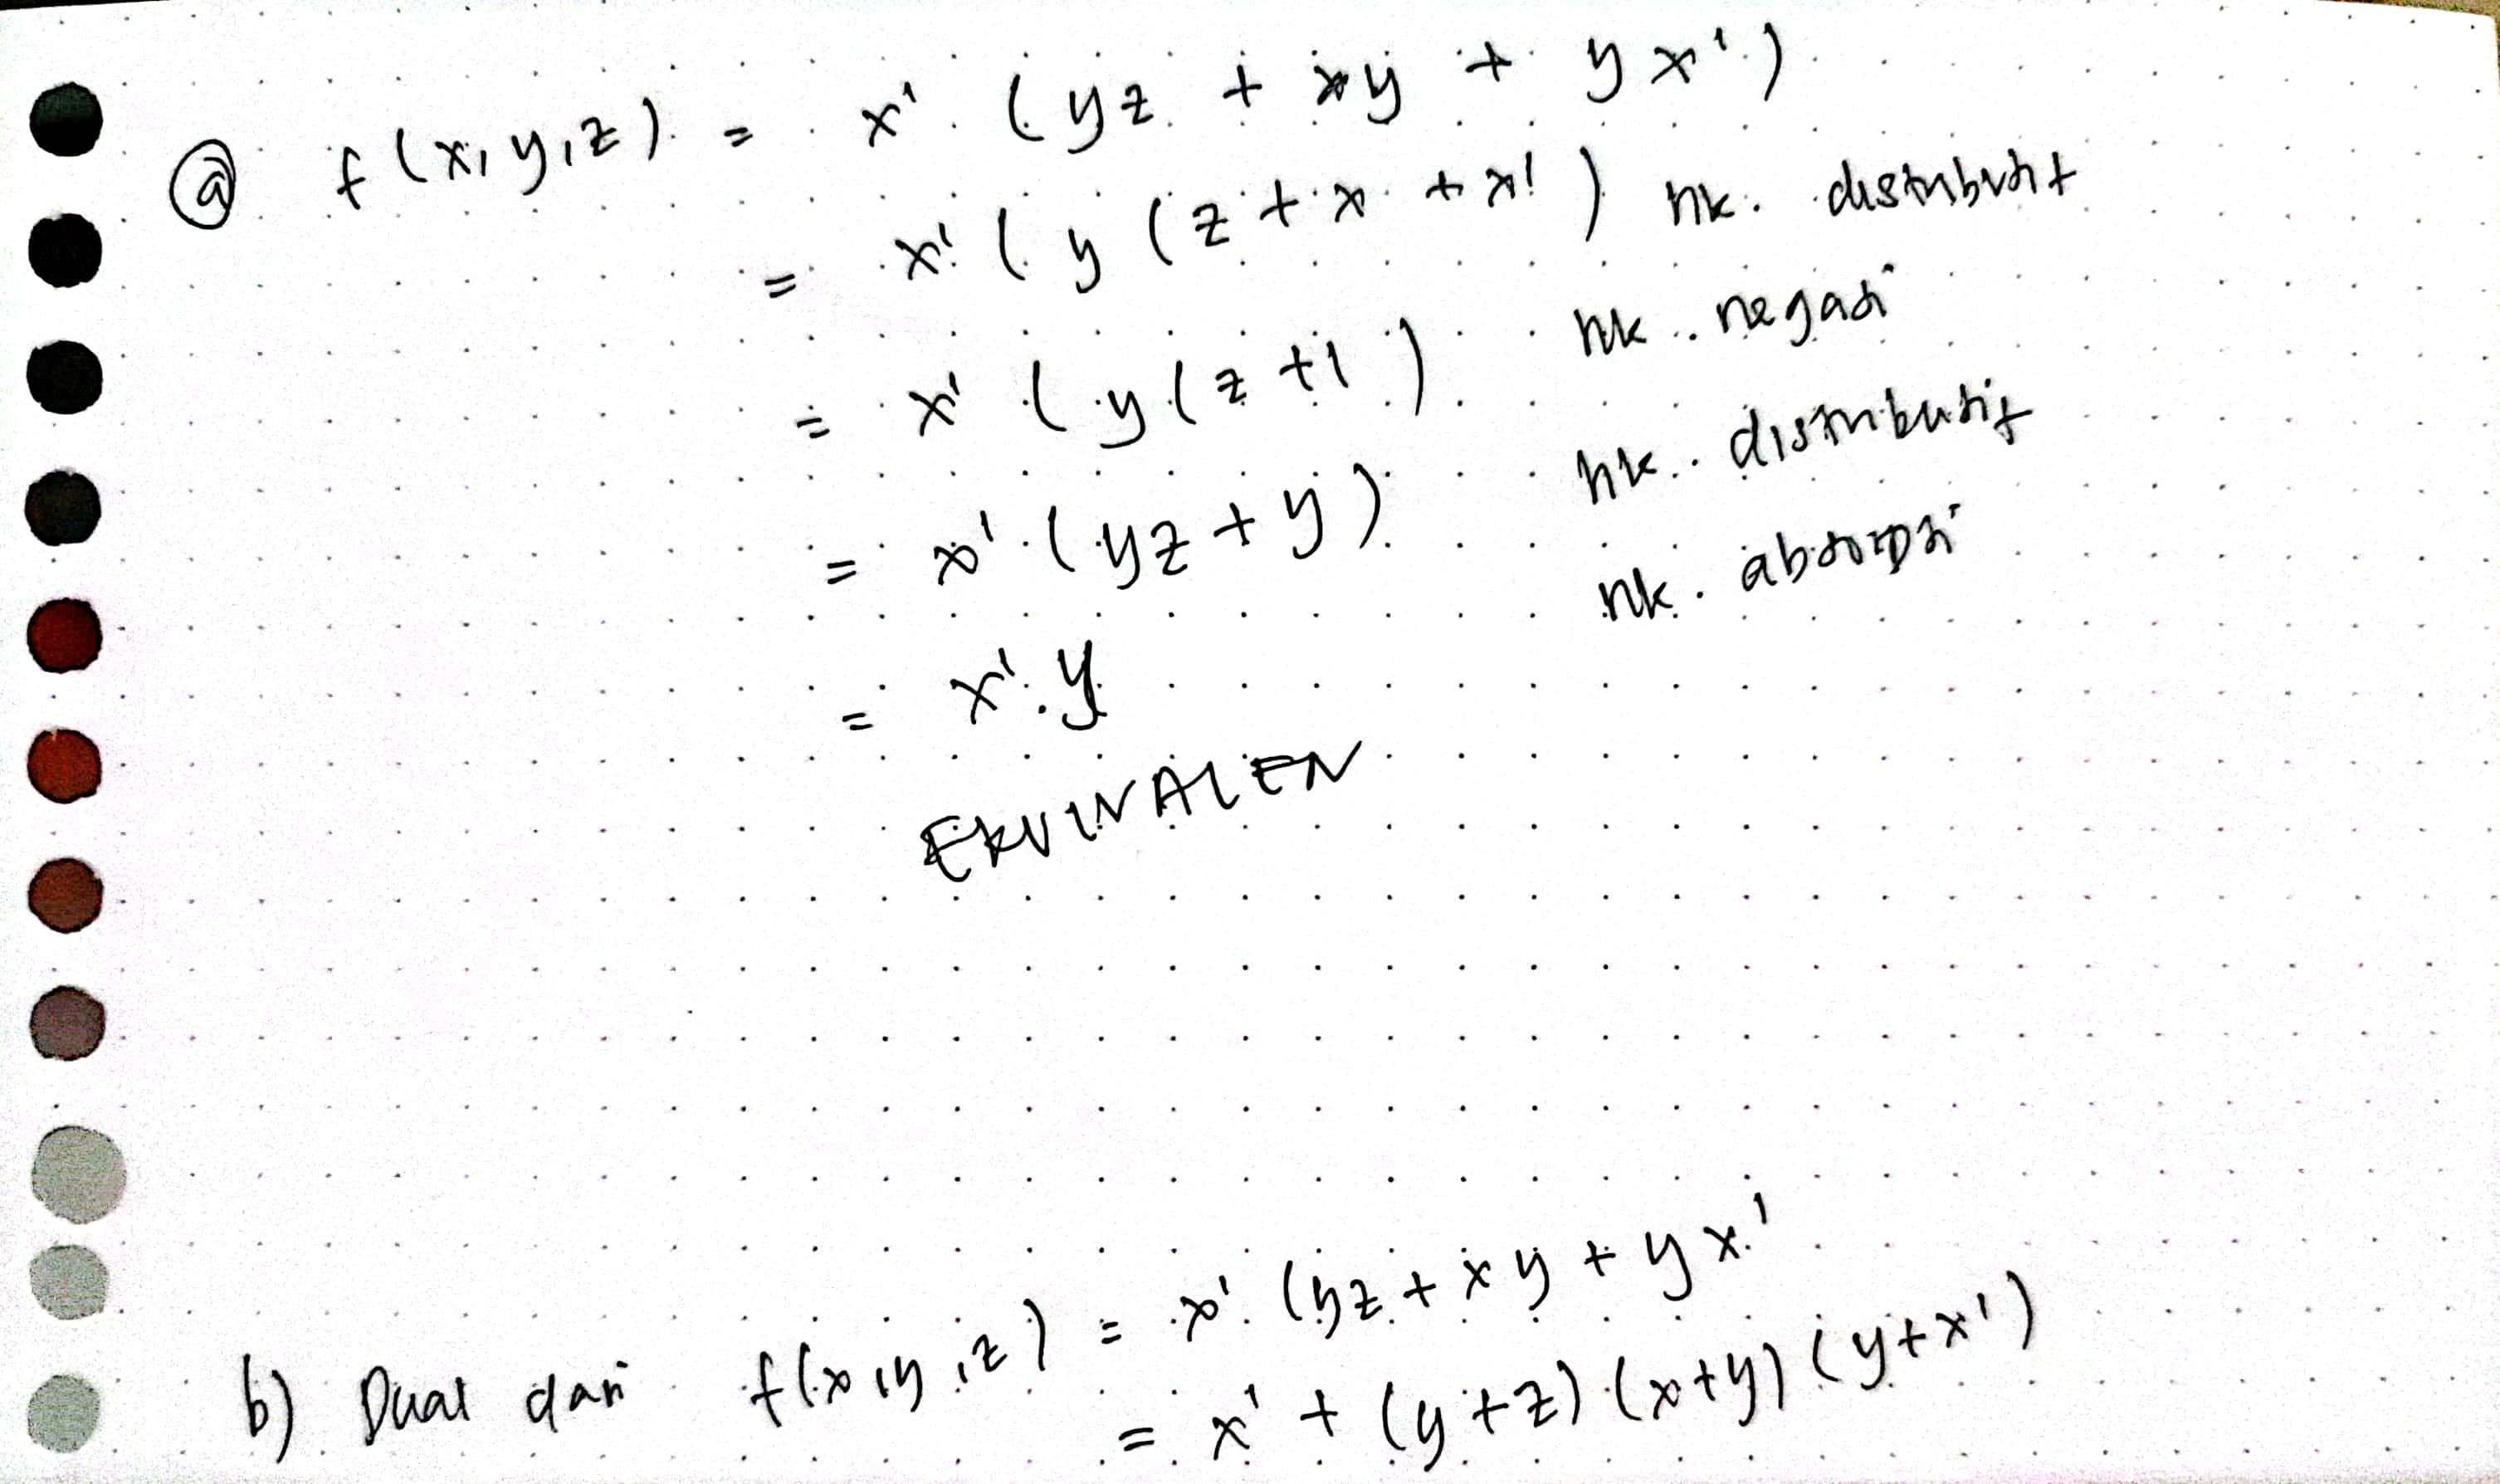 a f(x,y,z) = x' (yz + xy + yx')
= x' (y (z + x + x') hk. distributif
= x' (y(z+1) hk. negasi
= x' (yz + y) hk. distributif
= x'.y hk. absorpsi
EKUIVALEN
b) Dual dari f(x,y,z) = x' (yz + xy + yx'
= x' + (y+z) (x+y) (y+x')